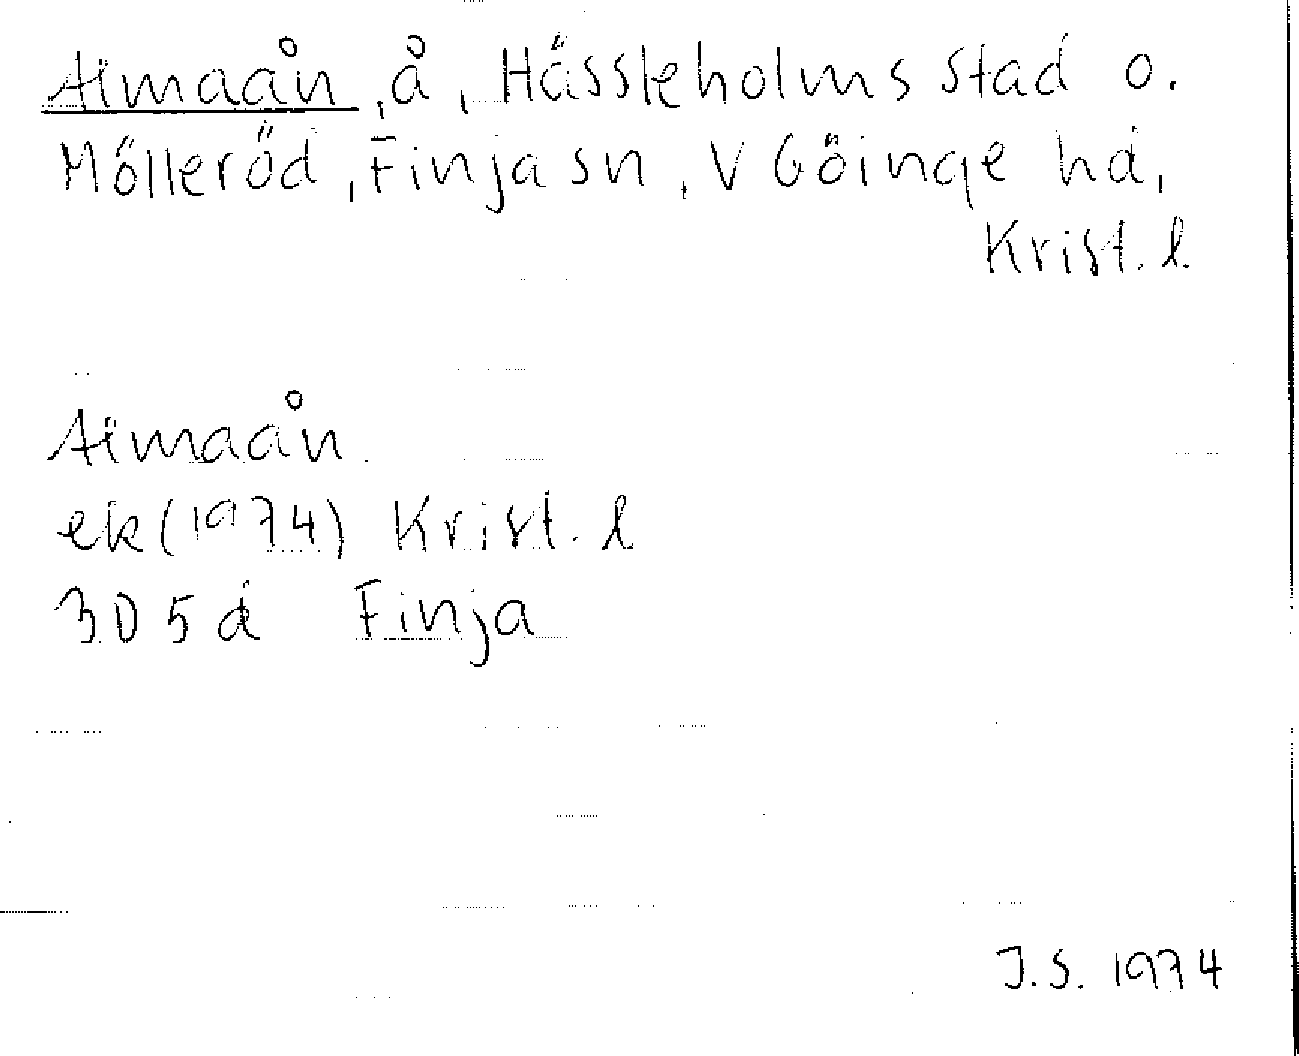 Almaån, å, Hässleholms stad o.
Mölleröd, Finja sn, V Göinge hd,
Krist. l.
Almaån
ek (1974) Krist. l
3D 5d Finja
J.S. 1974